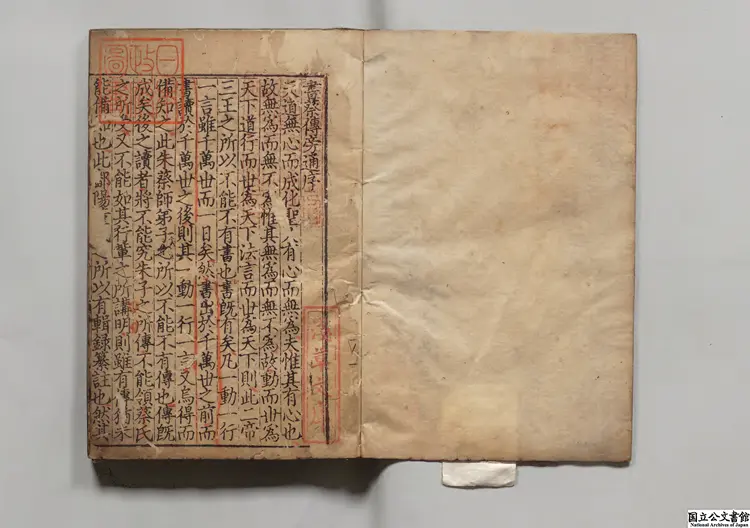 書蔡傳旁通序
天道無心而成化聖人有心而無為夫惟其有心也
故無為而無不為惟其無為而無不為故動而世為
天下道行而世為天下法言而世為天下則此二帝
三王之所以不能不有書也書旣有矣凡一動一行
一言雖千萬世而 日矣然書出於千萬世之前而
書讀於千萬世之後則其一動一行一言又烏得而
備知之此朱蔡師弟子之所以不能不有傳也傳旣
成矣後之讀者將不能究朱子之所傳不能領蔡氏
之所受又不能如其行輩之所講明則雖有傳猶未
能備知也此鄱陽 所以有輯錄纂註也然其
日 政 圖
国立公文書館
National Archives of Japan